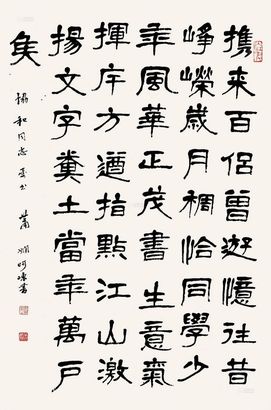 携来百侣曾遊憶往昔
崢嶸歲月稠恰同學少
年風華正茂書生意氣
揮斥方遒指點江山激
揚文字糞土當年萬戶
矦
和同志委书
蕭嫻呵凍書